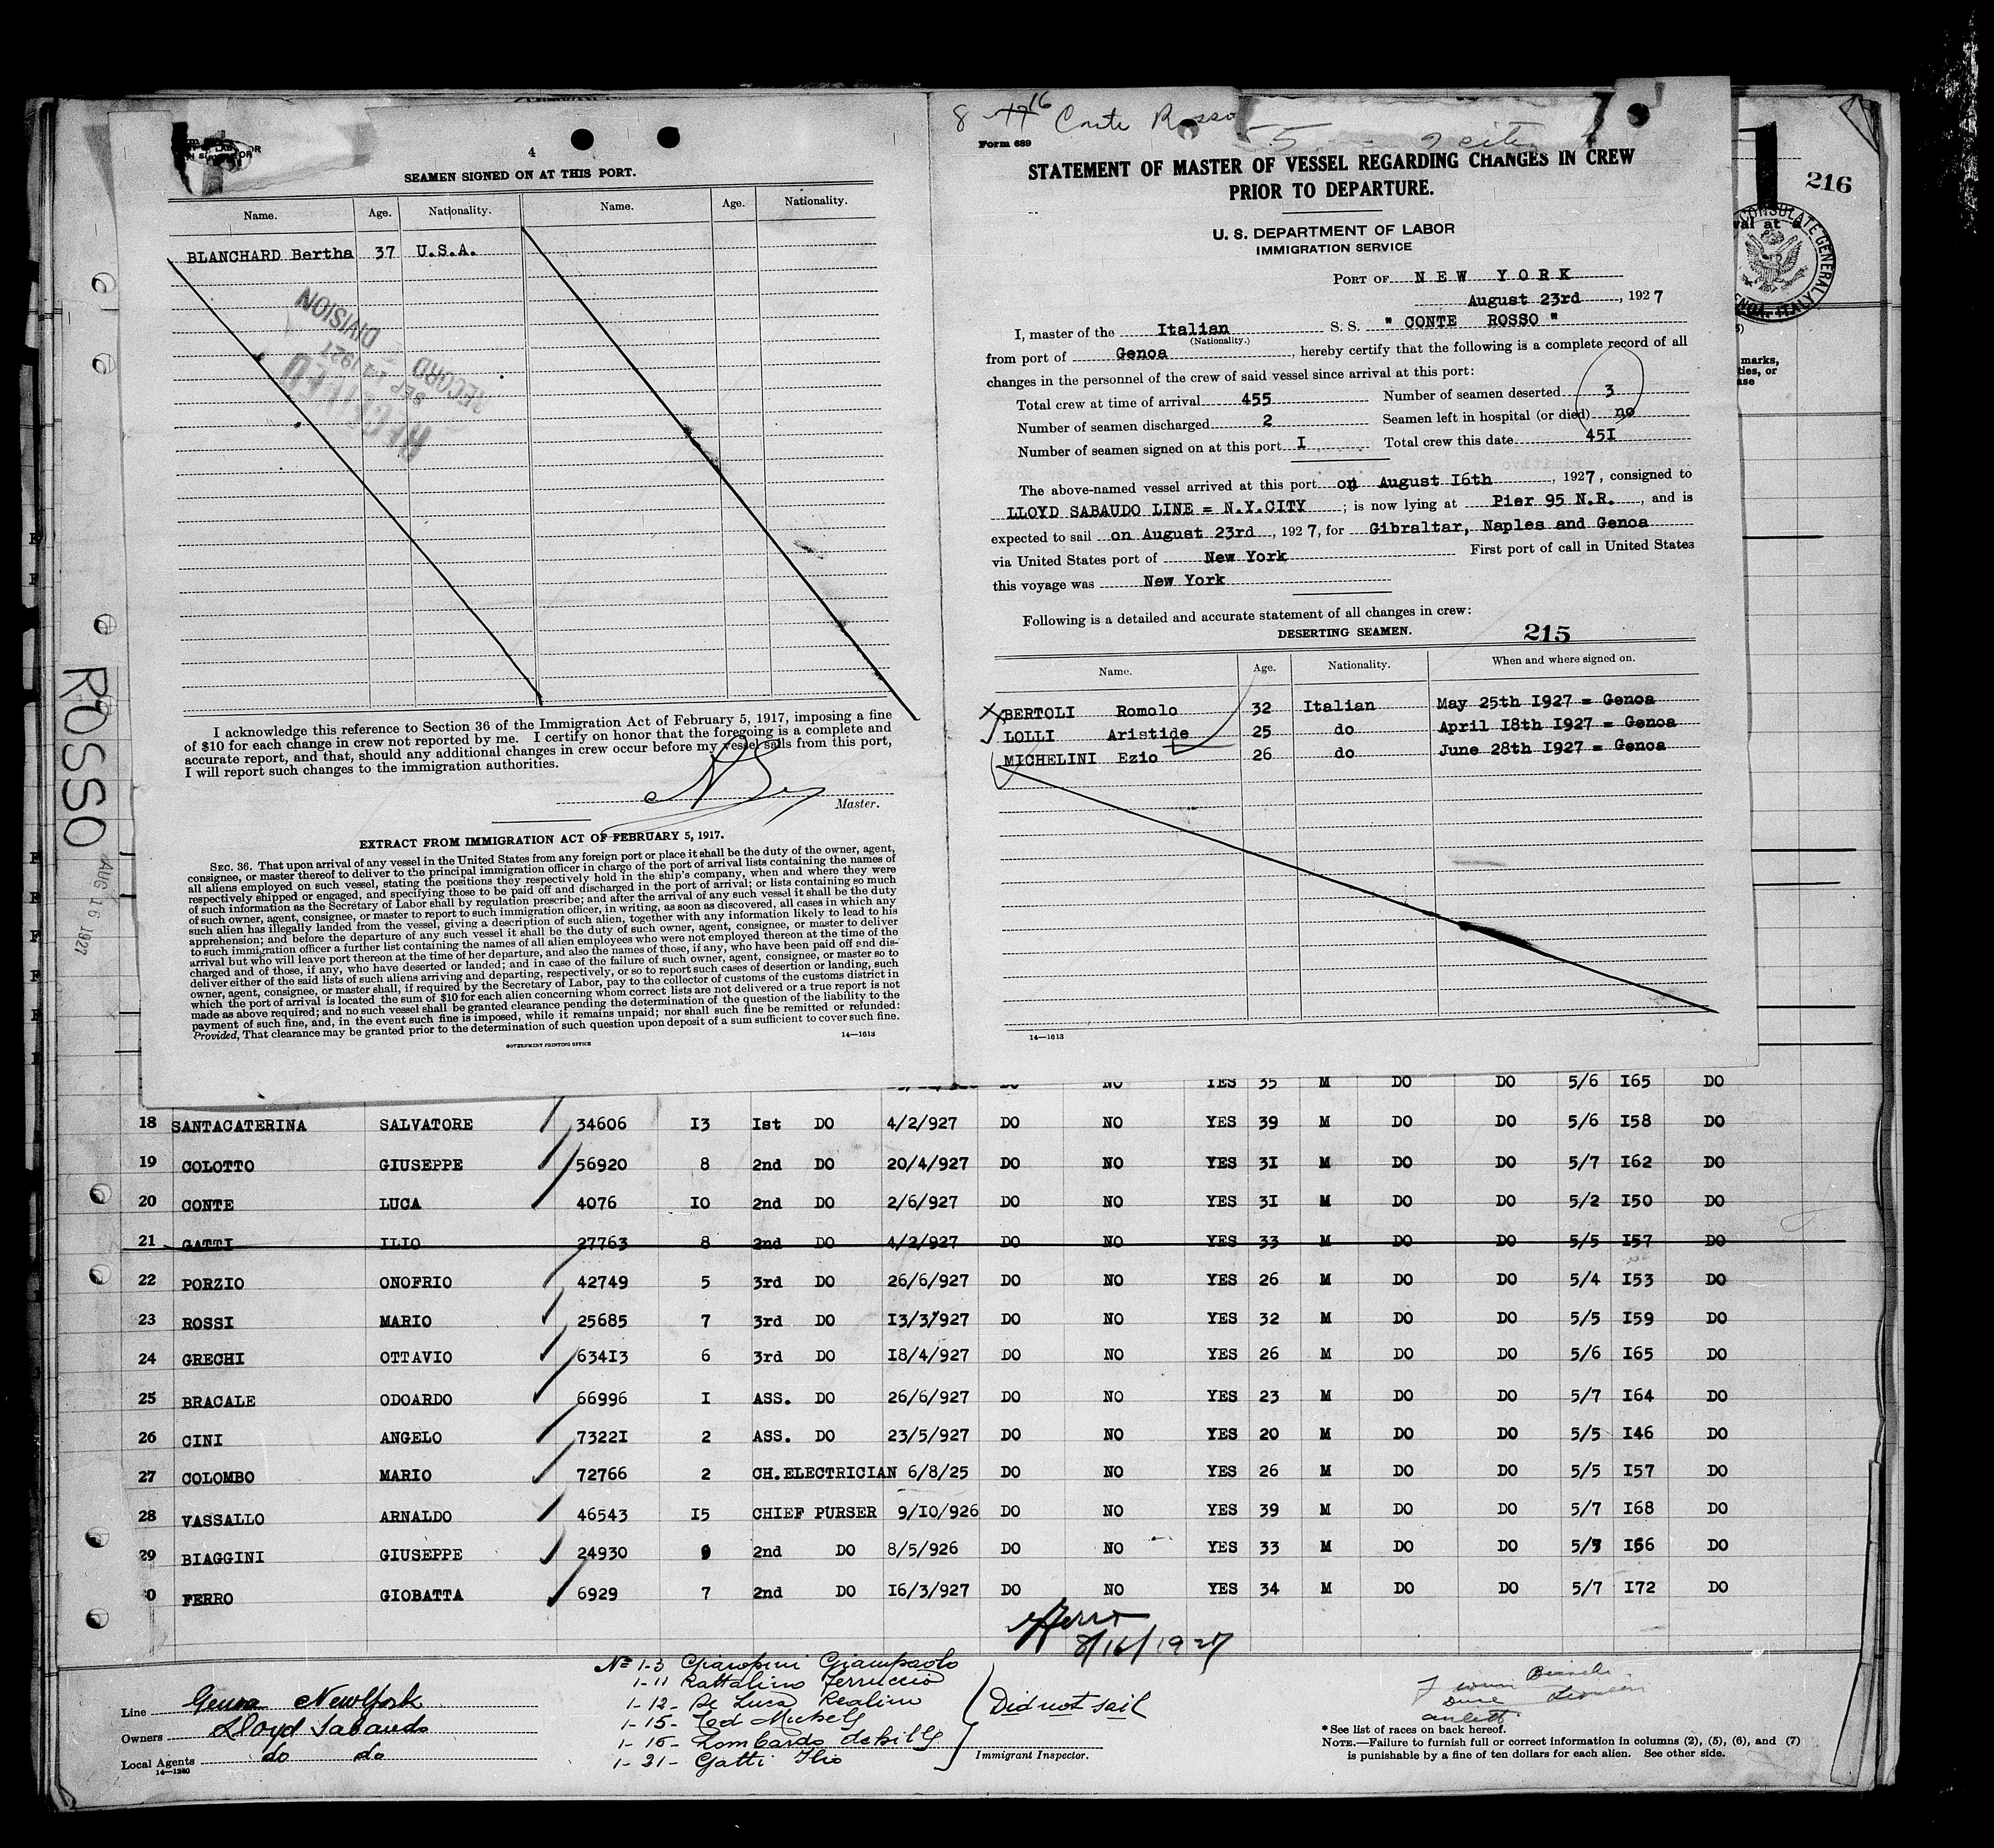 4
SEAMEN SIGNED ON AT THIS PORT.
Name. Age. Nationality. Name. Age. Nationality.
BLANCHARD Bertha 37 U.S.A.
RECEIVED
SEP 14 1927
RECORD DIVISION
I acknowledge this reference to Section 36 of the Immigration Act of February 5, 1917, imposing a fine
of $10 for each change in crew not reported by me. I certify on honor that the foregoing is a complete and
accurate report, and that, should any additional changes in crew occur before my vessel sails from this port,
I will report such changes to the immigration authorities.
Master.
EXTRACT FROM IMMIGRATION ACT OF FEBRUARY 5, 1917.
SEC. 36. That upon arrival of any vessel in the United States from any foreign port or place it shall be the duty of the owner, agent,
consignee, or master thereof to deliver to the principal immigration officer in charge of the port of arrival lists containing the names of
all aliens employed on such vessel, stating the positions they respectively hold in the ship's company, when and where they were
respectively shipped or engaged, and specifying those to be paid off and discharged in the port of arrival; or lists containing so much
of such information as the Secretary of Labor shall by regulation prescribe; and after the arrival of any such vessel it shall be the duty
of such owner, agent, consignee, or master to report to such immigration officer, in writing, as soon as discovered, all cases in which any
such alien has illegally landed from the vessel, giving a description of such alien, together with any information likely to lead to his
apprehension; and before the departure of any such vessel it shall be the duty of such owner, agent, consignee, or master to deliver
to such immigration officer a further list containing the names of all alien employees who were not employed thereon at the time of the
arrival but who will leave port thereon at the time of her departure, and also the names of those, if any, who have been paid off and dis-
charged and of those, if any, who have deserted or landed; and in case of the failure of such owner, agent, consignee, or master so to
deliver either of the said lists of such aliens arriving and departing, respectively, or so to report such cases of desertion or landing, such
owner, agent, consignee, or master shall, if required by the Secretary of Labor, pay to the collector of customs of the customs district in
which the port of arrival is located the sum of $10 for each alien concerning whom correct lists are not delivered or a true report is not
made as above required; and no such vessel shall be granted clearance pending the determination of the question of the liability to the
payment of such fine, and, in the event such fine is imposed, while it remains unpaid; nor shall such fine be remitted or refunded:
Provided, That clearance may be granted prior to the determination of such question upon deposit of a sum sufficient to cover such fine.
14—1613
GOVERNMENT PRINTING OFFICE
8 16 Conte Rosso
Form 689
STATEMENT OF MASTER OF VESSEL REGARDING CHANGES IN CREW
PRIOR TO DEPARTURE.
U. S. DEPARTMENT OF LABOR
IMMIGRATION SERVICE
PORT OF NEW YORK
August 23rd, 1927
I, master of the Italian S. S. " CONTE ROSSO "
(Nationality.)
from port of Genoa, hereby certify that the following is a complete record of all
changes in the personnel of the crew of said vessel since arrival at this port:
Total crew at time of arrival 455 Number of seamen deserted 3
Number of seamen discharged 2 Seamen left in hospital (or died) no
Number of seamen signed on at this port I Total crew this date 45I
The above-named vessel arrived at this port on August I6th, 1927, consigned to
LLOYD SABAUDO LINE = N.Y.CITY; is now lying at Pier 95 N.R., and is
expected to sail on August 23rd, 1927, for Gibraltar, Naples and Genoa
via United States port of New York First port of call in United States
this voyage was New York
Following is a detailed and accurate statement of all changes in crew:
DESERTING SEAMEN. 215
Name. Age. Nationality. When and where signed on.
BERTOLI Romolo 32 Italian May 25th I927 = Genoa
LOLLI Aristide 25 do April I8th I927 = Genoa
MICHELINI Ezio 26 do June 28th I927 = Genoa
14—1613
1
216
CONSULATE GENERAL
ITALY
marks,
ties, or
ROSSO
AUG 16 1927
YES 35 M DO DO 5/6 I65 DO
18 SANTACATERINA SALVATORE 34606 I3 Ist DO 4/2/927 DO NO YES 39 M DO DO 5/6 I58 DO
19 COLOTTO GIUSEPPE 56920 8 2nd DO 20/4/927 DO NO YES 3I M DO DO 5/7 I62 DO
20 CONTE LUCA 4076 IO 2nd DO 2/6/927 DO NO YES 3I M DO DO 5/2 I50 DO
21 GATTI ILIO 27763 8 2nd DO 4/2/927 DO NO YES 33 M DO DO 5/5 I57 DO
22 PORZIO ONOFRIO 42749 5 3rd DO 26/6/927 DO NO YES 26 M DO DO 5/4 I53 DO
23 ROSSI MARIO 25685 7 3rd DO I3/3/927 DO NO YES 32 M DO DO 5/5 I59 DO
24 GRECHI OTTAVIO 634I3 6 3rd DO I8/4/927 DO NO YES 26 M DO DO 5/6 I65 DO
25 BRACALE ODOARDO 66996 I ASS. DO 26/6/927 DO NO YES 23 M DO DO 5/7 I64 DO
26 CINI ANGELO 7322I 2 ASS. DO 23/5/927 DO NO YES 20 M DO DO 5/5 I46 DO
27 COLOMBO MARIO 72766 2 CH.ELECTRICIAN 6/8/25 DO NO YES 26 M DO DO 5/5 I57 DO
28 VASSALLO ARNALDO 46543 I5 CHIEF PURSER 9/IO/926 DO NO YES 39 M DO DO 5/7 I68 DO
29 BIAGGINI GIUSEPPE 24930 2nd DO 8/5/926 DO NO YES 33 M DO DO I66 DO
0 FERRO GIOBATTA 6929 7 2nd DO I6/3/927 DO NO YES 34 M DO DO 5/7 I72 DO
8/16/1927
Line Genoa New York
Owners Lloyd Sabaudo
Local Agents do do
14—1240
No 1-3 Giampaolo
1-11 Rattalino Ferruccio
1-12- De Luca Realino
1-15-
1-16- Lombardo
1-21- Gatti Ilio
Did not sail
Immigrant Inspector.
* See list of races on back hereof.
NOTE.—Failure to furnish full or correct information in columns (2), (5), (6), and (7)
is punishable by a fine of ten dollars for each alien. See other side.